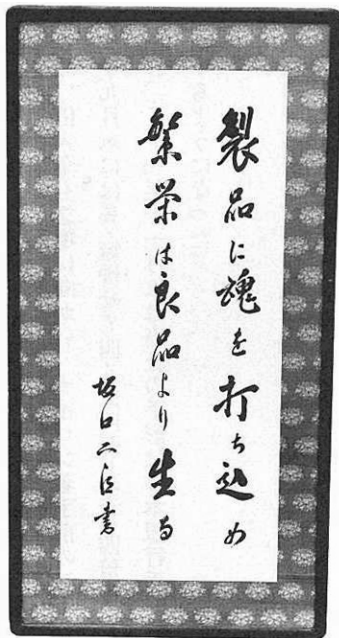 製品に魂を打ち込め
繁栄は良品より生る
坂口二郎書